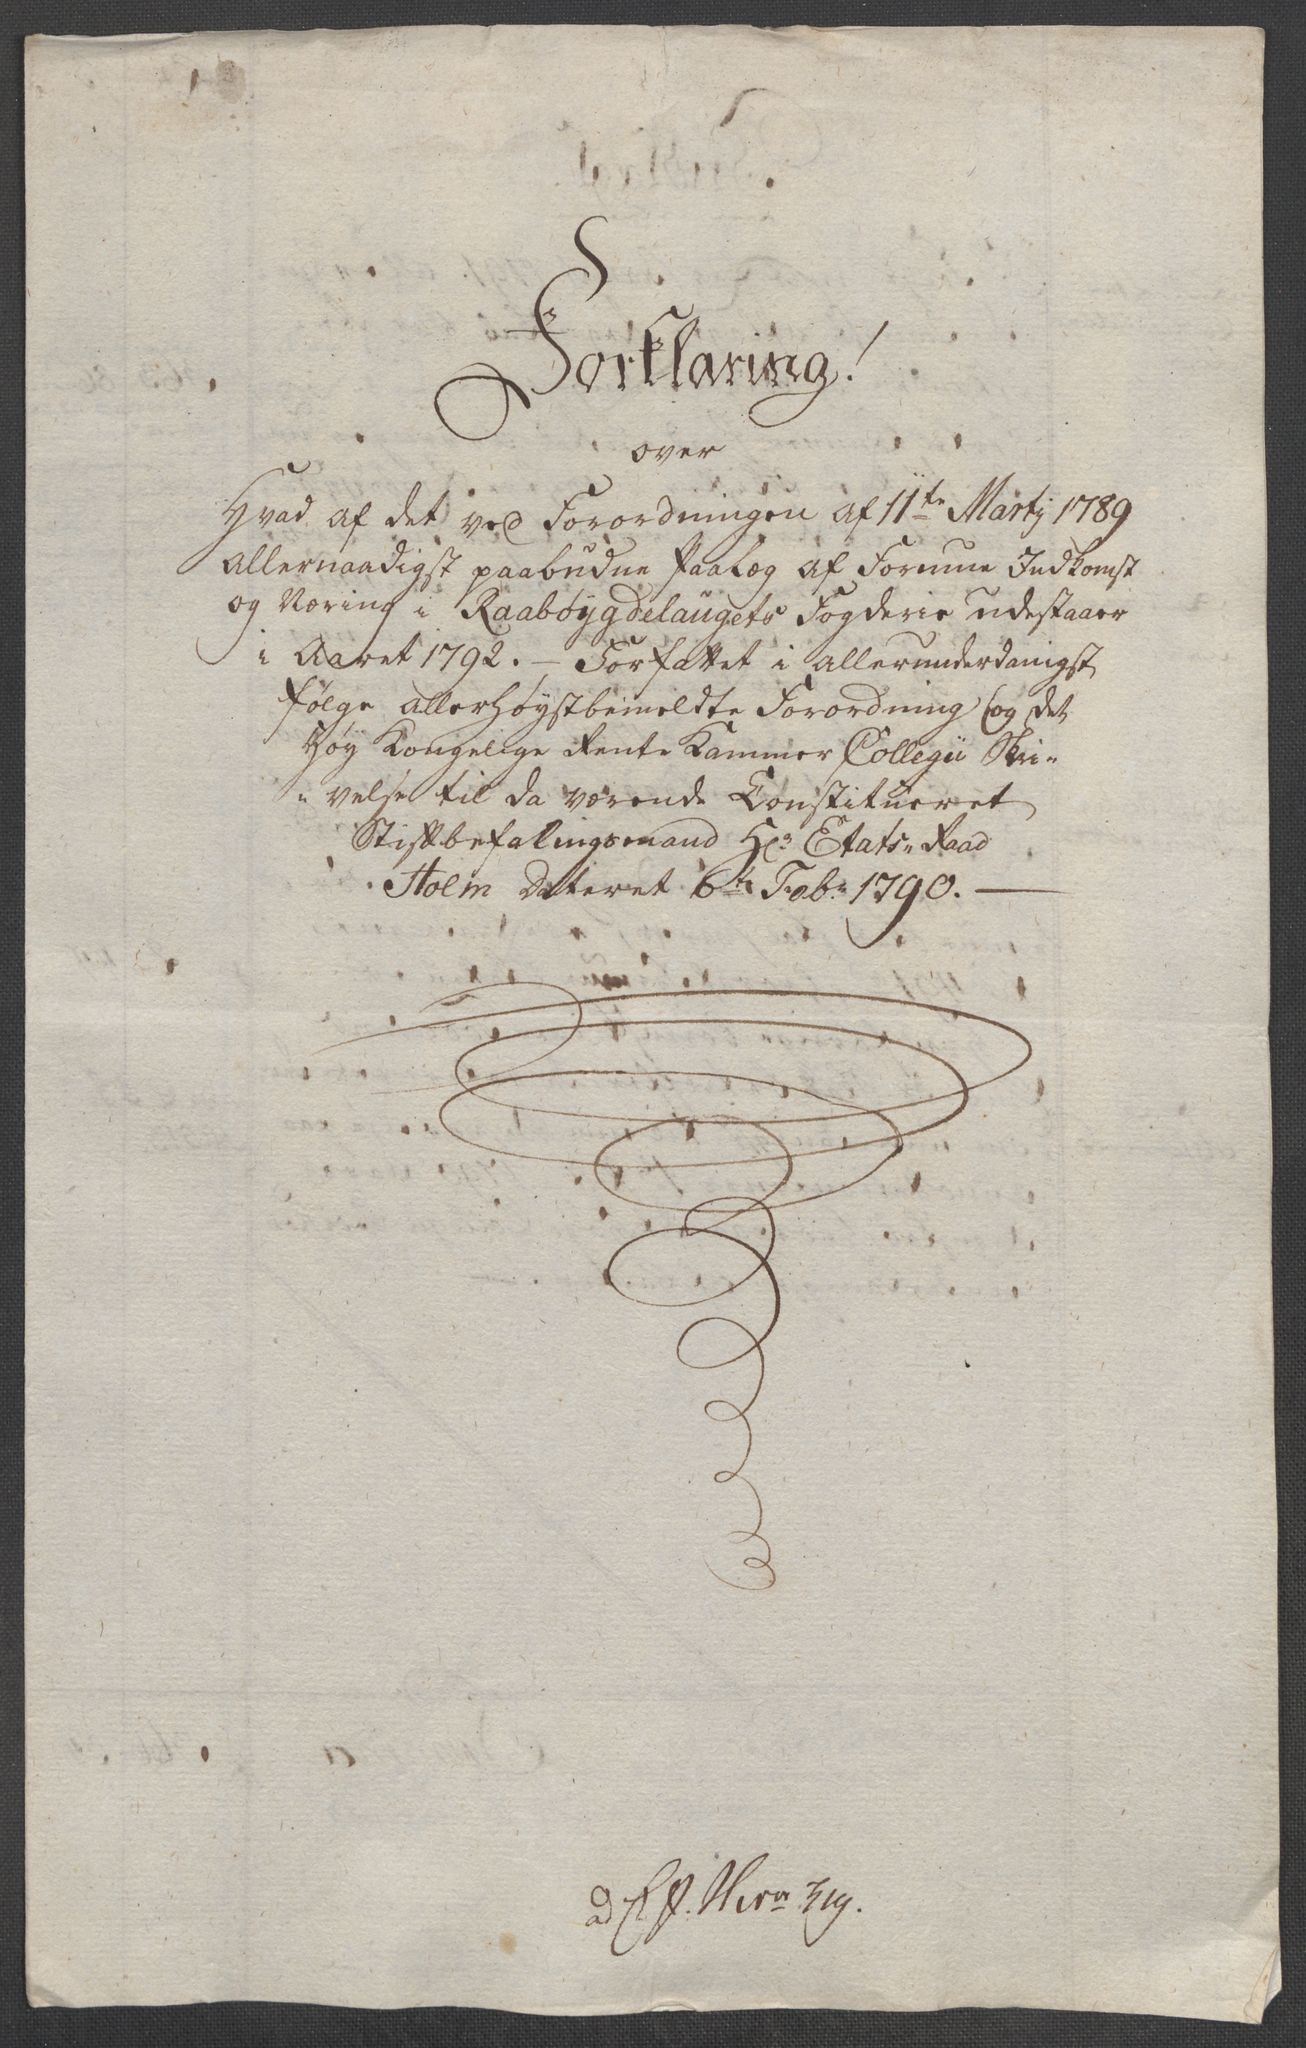 Forklaring!
over
Hvad af det ved Forordningen af 11te Martij 1789
allernaadigst paabudne Paalæg af Formue Indkomst
og Næring i Raabøygdelaugets Fogderie udestaaer
i Aaret 1792. — Forfattet i allerunderdanigst
følge allerhøystbemeldte Forordning og det
Høy Kongelige Rente Kammer Collegii Skri„
„velse til da værende Constitueret
Stiftbefalingsmand Hr. Etats„Raad
Holm dateret 6te Febr. 1790. —
ad